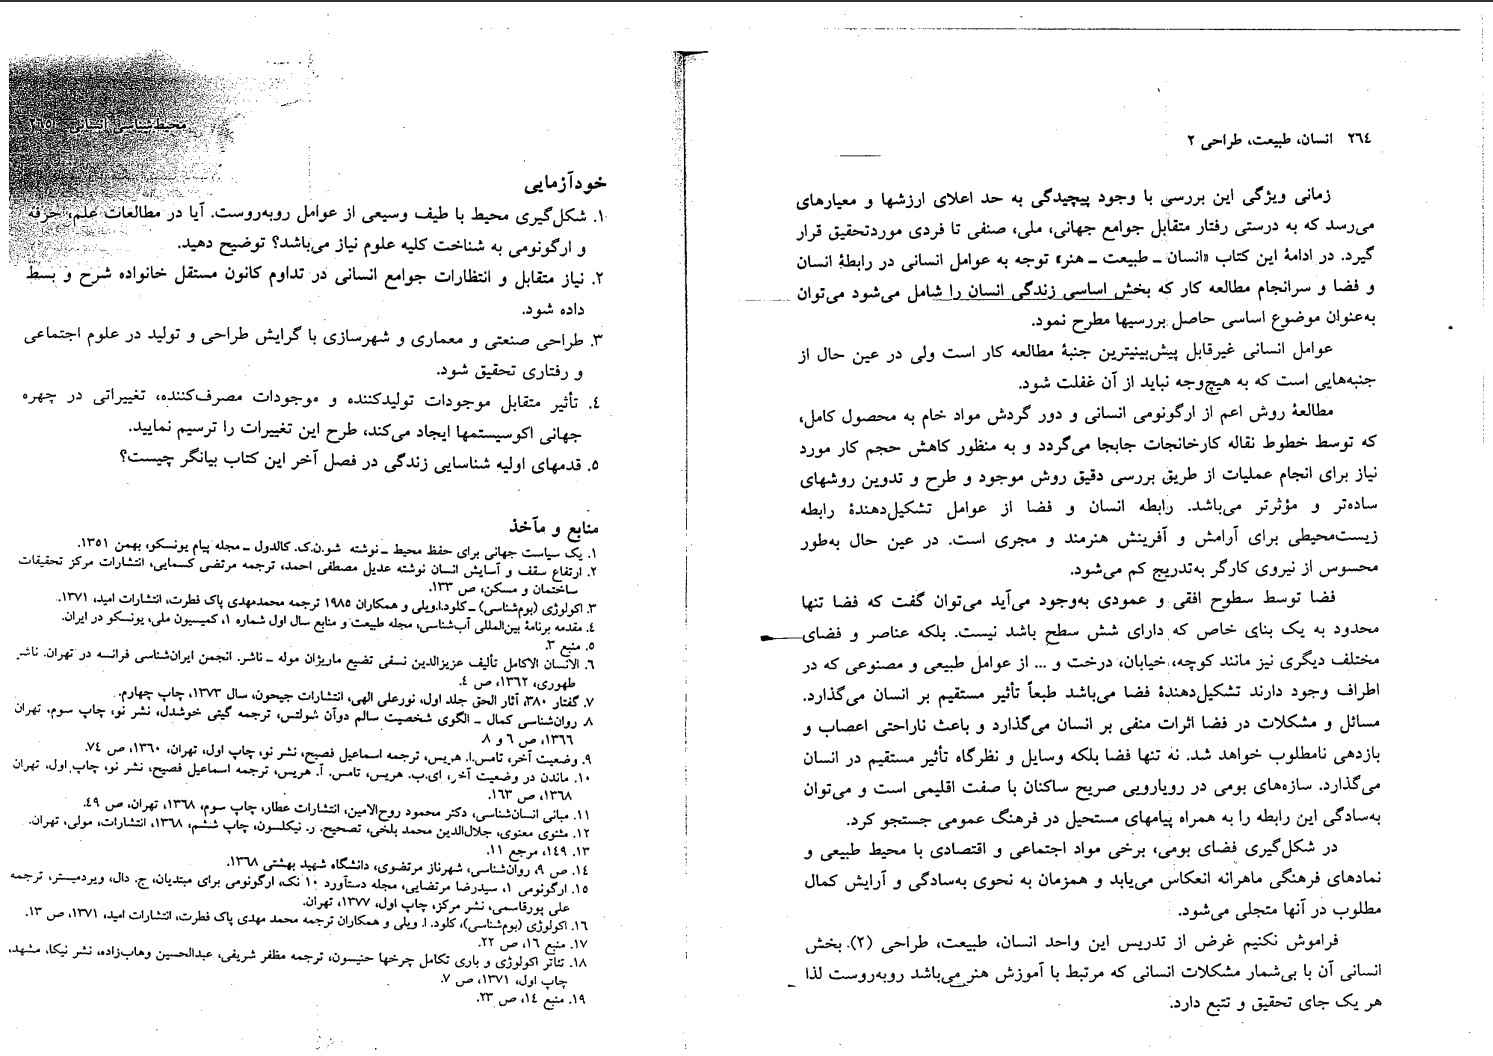 ٢٦٤ انسان، طبیعت، طراحی ٢
زمانی ویژگی این بررسی با وجود پیچیدگی به حد اعلای ارزشها و معیارهای
می‌رسد که به درستی رفتار متقابل جوامع جهانی، ملی، صنفی تا فردی موردتحقیق قرار
گیرد. در ادامهٔ این کتاب «انسان ـ طبیعت ـ هنر» توجه به عوامل انسانی در رابطهٔ انسان
و فضا و سرانجام مطالعه کار که بخش اساسی زندگی انسان را شامل می‌شود می‌توان
به‌عنوان موضوع اساسی حاصل بررسیها مطرح نمود.
عوامل انسانی غیرقابل پیش‌بینیترین جنبهٔ مطالعه کار است ولی در عین حال از
جنبه‌هایی است که به هیچ‌وجه نباید از آن غفلت شود.
مطالعهٔ روش اعم از ارگونومی انسانی و دور گردش مواد خام به محصول کامل،
که توسط خطوط نقاله کارخانجات جابجا می‌گردد و به منظور کاهش حجم کار مورد
نیاز برای انجام عملیات از طریق بررسی دقیق روش موجود و طرح و تدوین روشهای
ساده‌تر و مؤثرتر می‌باشد. رابطه انسان و فضا از عوامل تشکیل‌دهندهٔ رابطه
زیست‌محیطی برای آرامش و آفرینش هنرمند و مجری است. در عین حال به‌طور
محسوس از نیروی کارگر به‌تدریج کم می‌شود.
فضا توسط سطوح افقی و عمودی به‌وجود می‌آید می‌توان گفت که فضا تنها
محدود به یک بنای خاص که دارای شش سطح باشد نیست. بلکه عناصر و فضای
مختلف دیگری نیز مانند کوچه، خیابان، درخت و ... از عوامل طبیعی و مصنوعی که در
اطراف وجود دارند تشکیل‌دهندهٔ فضا می‌باشد طبعاً تأثیر مستقیم بر انسان می‌گذارد.
مسائل و مشکلات در فضا اثرات منفی بر انسان می‌گذارد و باعث ناراحتی اعصاب و
بازدهی نامطلوب خواهد شد. نه تنها فضا بلکه وسایل و نظرگاه تأثیر مستقیم در انسان
می‌گذارد. سازه‌های بومی در رویارویی صریح ساکنان با صفت اقلیمی است و می‌توان
به‌سادگی این رابطه را به همراه پیامهای مستحیل در فرهنگ عمومی جستجو کرد.
در شکل‌گیری فضای بومی، برخی مواد اجتماعی و اقتصادی با محیط طبیعی و
نمادهای فرهنگی ماهرانه انعکاس می‌یابد و همزمان به نحوی به‌سادگی و آرایش کمال
مطلوب در آنها متجلی می‌شود.
فراموش نکنیم غرض از تدریس این واحد انسان، طبیعت، طراحی (٢). بخش
انسانی آن با بی‌شمار مشکلات انسانی که مرتبط با آموزش هنر می‌باشد روبه‌روست لذا
هر یک جای تحقیق و تتبع دارد.
محیط‌شناسی انسانی ٢٦٥
خودآزمایی
١. شکل‌گیری محیط با طیف وسیعی از عوامل روبه‌روست. آیا در مطالعات علم، حرفه
و ارگونومی به شناخت کلیه علوم نیاز می‌باشد؟ توضیح دهید.
٢. نیاز متقابل و انتظارات جوامع انسانی در تداوم کانون مستقل خانواده شرح و بسط
داده شود.
٣. طراحی صنعتی و معماری و شهرسازی با گرایش طراحی و تولید در علوم اجتماعی
و رفتاری تحقیق شود.
٤. تأثیر متقابل موجودات تولیدکننده و موجودات مصرف‌کننده، تغییراتی در چهره
جهانی اکوسیستمها ایجاد می‌کند، طرح این تغییرات را ترسیم نمایید.
٥. قدمهای اولیه شناسایی زندگی در فصل آخر این کتاب بیانگر چیست؟
منابع و مآخذ
١. یک سیاست جهانی برای حفظ محیط ـ نوشته شو.ن.ک. کالدول ـ مجله پیام یونسکو، بهمن ١٣٥١.
٢. ارتفاع سقف و آسایش انسان نوشته عدیل مصطفی احمد، ترجمه مرتضی کسمایی، انتشارات مرکز تحقیقات
ساختمان و مسکن، ص ١٣٣.
٣. اکولوژی (بوم‌شناسی) ـ کلود.ا.ویلی و همکاران ١٩٨٥ ترجمه محمدمهدی پاک فطرت، انتشارات امید، ١٣٧١.
٤. مقدمه برنامهٔ بین‌المللی آب‌شناسی، مجله طبیعت و منابع سال اول شماره ١، کمیسیون ملی، یونسکو در ایران.
٥. منبع ٣.
٦. الانسان الاکامل تألیف عزیزالدین نسفی تضیع ماریژان موله ـ ناشر. انجمن ایران‌شناسی فرانسه در تهران. ناشر
طهوری، ١٣٦٢، ص ٤.
٧. گفتار ٣٨٠، آثار الحق جلد اول، نورعلی الهی، انتشارات جیحون، سال ١٣٧٣، چاپ چهارم.
٨. روان‌شناسی کمال ـ الگوی شخصیت سالم دوآن شولتس، ترجمه گیتی خوشدل، نشر نو، چاپ سوم، تهران
١٣٦٦، ص ٦ و ٨
٩. وضعیت آخر، تامس.ا. هریس، ترجمه اسماعیل فصیح، نشر نو، چاپ اول، تهران، ١٣٦٠، ص ٧٤.
١٠. ماندن در وضعیت آخر، ای.ب. هریس، تامس. آ. هریس، ترجمه اسماعیل فصیح، نشر نو، چاپ اول، تهران
١٣٦٨، ص ١٦٣.
١١. مبانی انسان‌شناسی، دکتر محمود روح‌الامین، انتشارات عطار، چاپ سوم، ١٣٦٨، تهران، ص ٤٩.
١٢. مثنوی معنوی، جلال‌الدین محمد بلخی، تصحیح. ر. نیکلسون، چاپ ششم، ١٣٦٨، انتشارات، مولی، تهران.
١٣. ١٤٩، مرجع ١١.
١٤. ص ٩، روان‌شناسی، شهرناز مرتضوی، دانشگاه شهید بهشتی ١٣٦٨.
١٥. ارگونومی ١، سیدرضا مرتضایی، مجله دستآورد ١٠ تک، ارگونومی برای مبتدیان، ج. دال، ویردمیستر، ترجمه
علی پورقاسمی، نشر مرکز، چاپ اول، ١٣٧٧، تهران.
١٦. اکولوژی (بوم‌شناسی)، کلود. ا. ویلی و همکاران ترجمه محمد مهدی پاک فطرت، انتشارات امید، ١٣٧١، ص ١٣.
١٧. منبع ١٦، ص ٢٢.
١٨. تئاتر اکولوژی و باری تکامل چرخها حنیسون، ترجمه مظفر شریفی، عبدالحسین وهاب‌زاده، نشر نیکا، مشهد،
چاپ اول، ١٣٧١، ص ٧.
١٩. منبع ١٤، ص ٢٣.